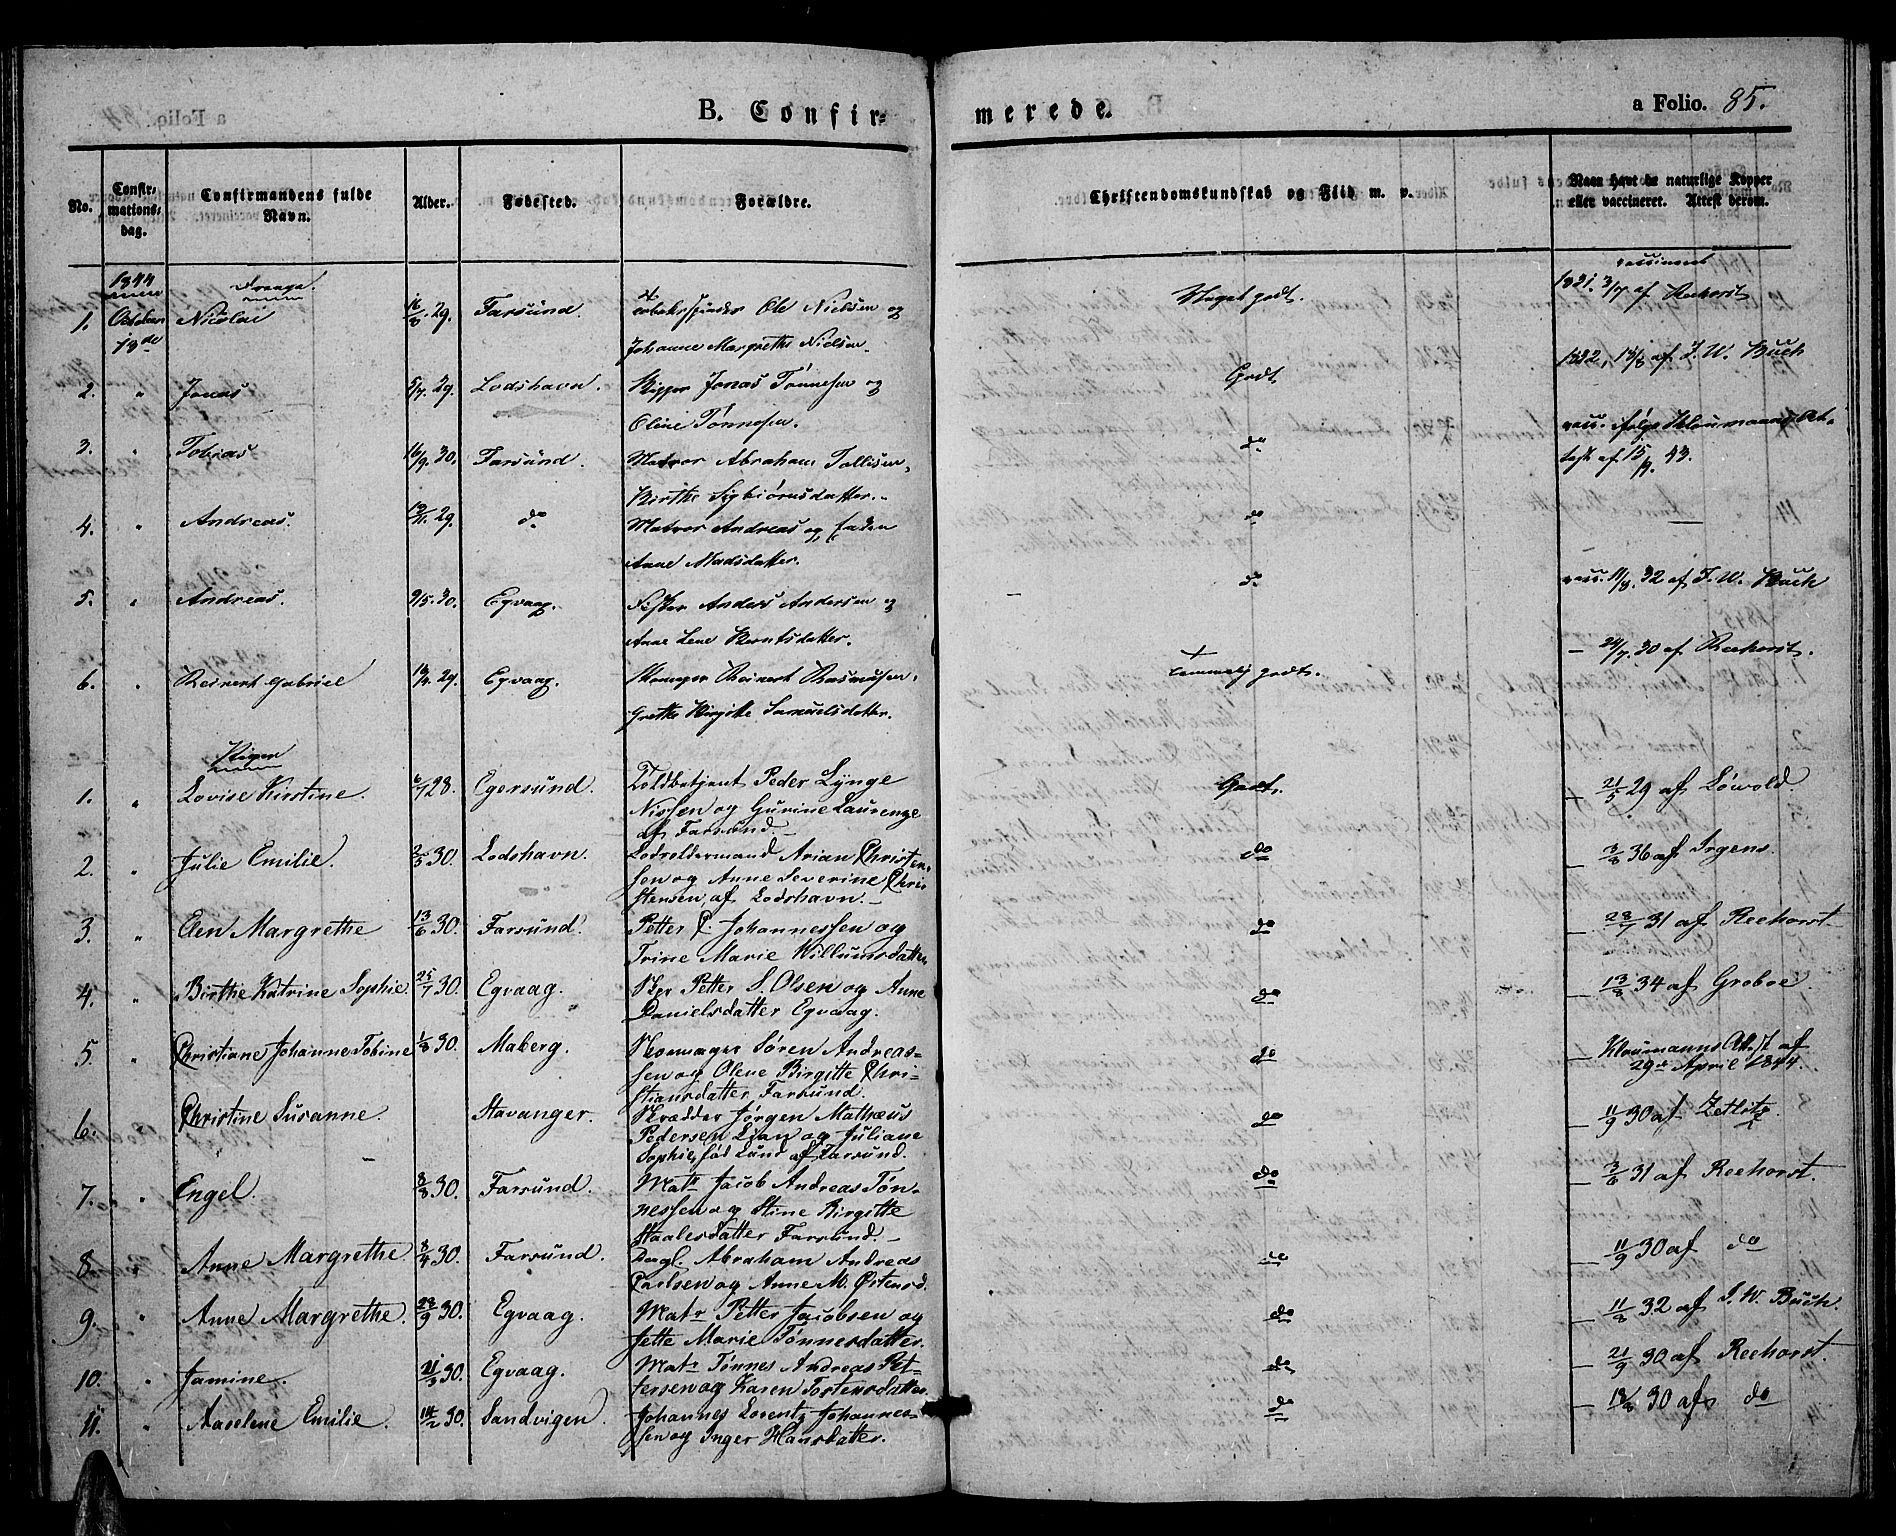 B. Confir= merede.
a Folio. 85.
No. Confir-mations-dag. Confirmandens fulde Navn. Alder. Fødested. Forældre. Christendomskundskab og Flid m. v. Naar havt de naturlige Kopper eller vaccineret. Attest derom.
1844 Drenge. vaccineret
1. October 13de Nicolai 29. Farsund. Ole Nielsen og Meget godt. 1831. 3/7 af Reehorst
Johanne Margrethe Nielsen.
2. " Jonas 5/7. 29. Lodshavn. Skipper Jonas Tønnesen og Godt 1832, af J. W. Buch
Oline Tønnesen.
3. " Tobias 16/9. 30. Farsund. Matros Abraham Tollisen, do vacc. følge Kloumanns At-
Birthe Sigbiørnsdatter. test af 15/9. 43.
4. " Andreas. 29. do Matros Andreas og do —
Anne Madsdatter.
5. " Andreas. 9/5. 30. Egvaag. Fisker Anders Andersen og do vacc. 11/8. 32 af J. W. Buch
Anne Lene Berntsdatter.
6. " Reinert Gabriel 29. Egvaag. Skomager Reinert Rasmussen, Temmelig godt. — 24/7. 30 af Reehorst.
Grethe Birgitte Samuelsdatter.
Piger
1. " Lovise Kirstine. 6/7 28. Egersund. Toldbetjent Peder Lynge Godt. — 21/5 29 af Løwold.
Nissen og Gurine Laurenze
af Farsund. —
2. " Julie Emilie. 2/5 30. Lodshavn. Lodsoldermand Arian Christen- do — 3/8 36 af Irgens.
sen og Anne Severine Chri-
stensen, af Lodshavn. —
3. " Elen Margrethe 13/6 30. Farsund. Petter C. Johannessen og do — 28/7 31 af Reehorst
Trine Marie Willumsdatter.
4. " Birthe Katrine Sophie. 25/7 30. Egvaag. Skpr Petter S. Olsen og Anne do — 13/8 34 af Groboe.
Danielsdatter Egvaag.
5 " Christiane Johanne Tobine 1/8 30. Maberg. Skomager Søren Andreas- do — Kloumanns Attest af
sen og Olene Birgitte Chri- 29de April 1844.
stiansdatter Farsund.
6. Christine Susanne Stavanger. Skrædder Jørgen Mathæus do — 11/9 30 af Zetlitz
Pedersen Lian og Juliane
Sophie, fød Lund af Farsund.
7. " Engel. 8/8 30. Farsund. Mats Jacob Andreas Tøn- do — 3/6 31 af Reehorst.
nessen og Stine Birgitte
Staalesdatter Farsund. —
8. " Anne Margrethe 8/4 30. Farsund. Dagl. Abraham Andreas do — 11/9 30 af do
Carlsen og Anne M. Østensd.
9. " Anne Margrethe. 28/9 30. Egvaag. Mats Petter Jacobsen og do — 11/8 32 af J. W. Buch.
Jette Marie Tønnesdatter.
10. " Jamine. 21/3 30. Egvaag. Mats Tønnes Andreas Pet- do — 21/9 30 af Reehorst.
tersen og Karen Torstensdatter.
11. " Aaselene Emilie. 14/2 30. Sandvigen. Johannes Lorentz Johannes- do — 18/8 30 af do
sen og Inger Hansdatter.